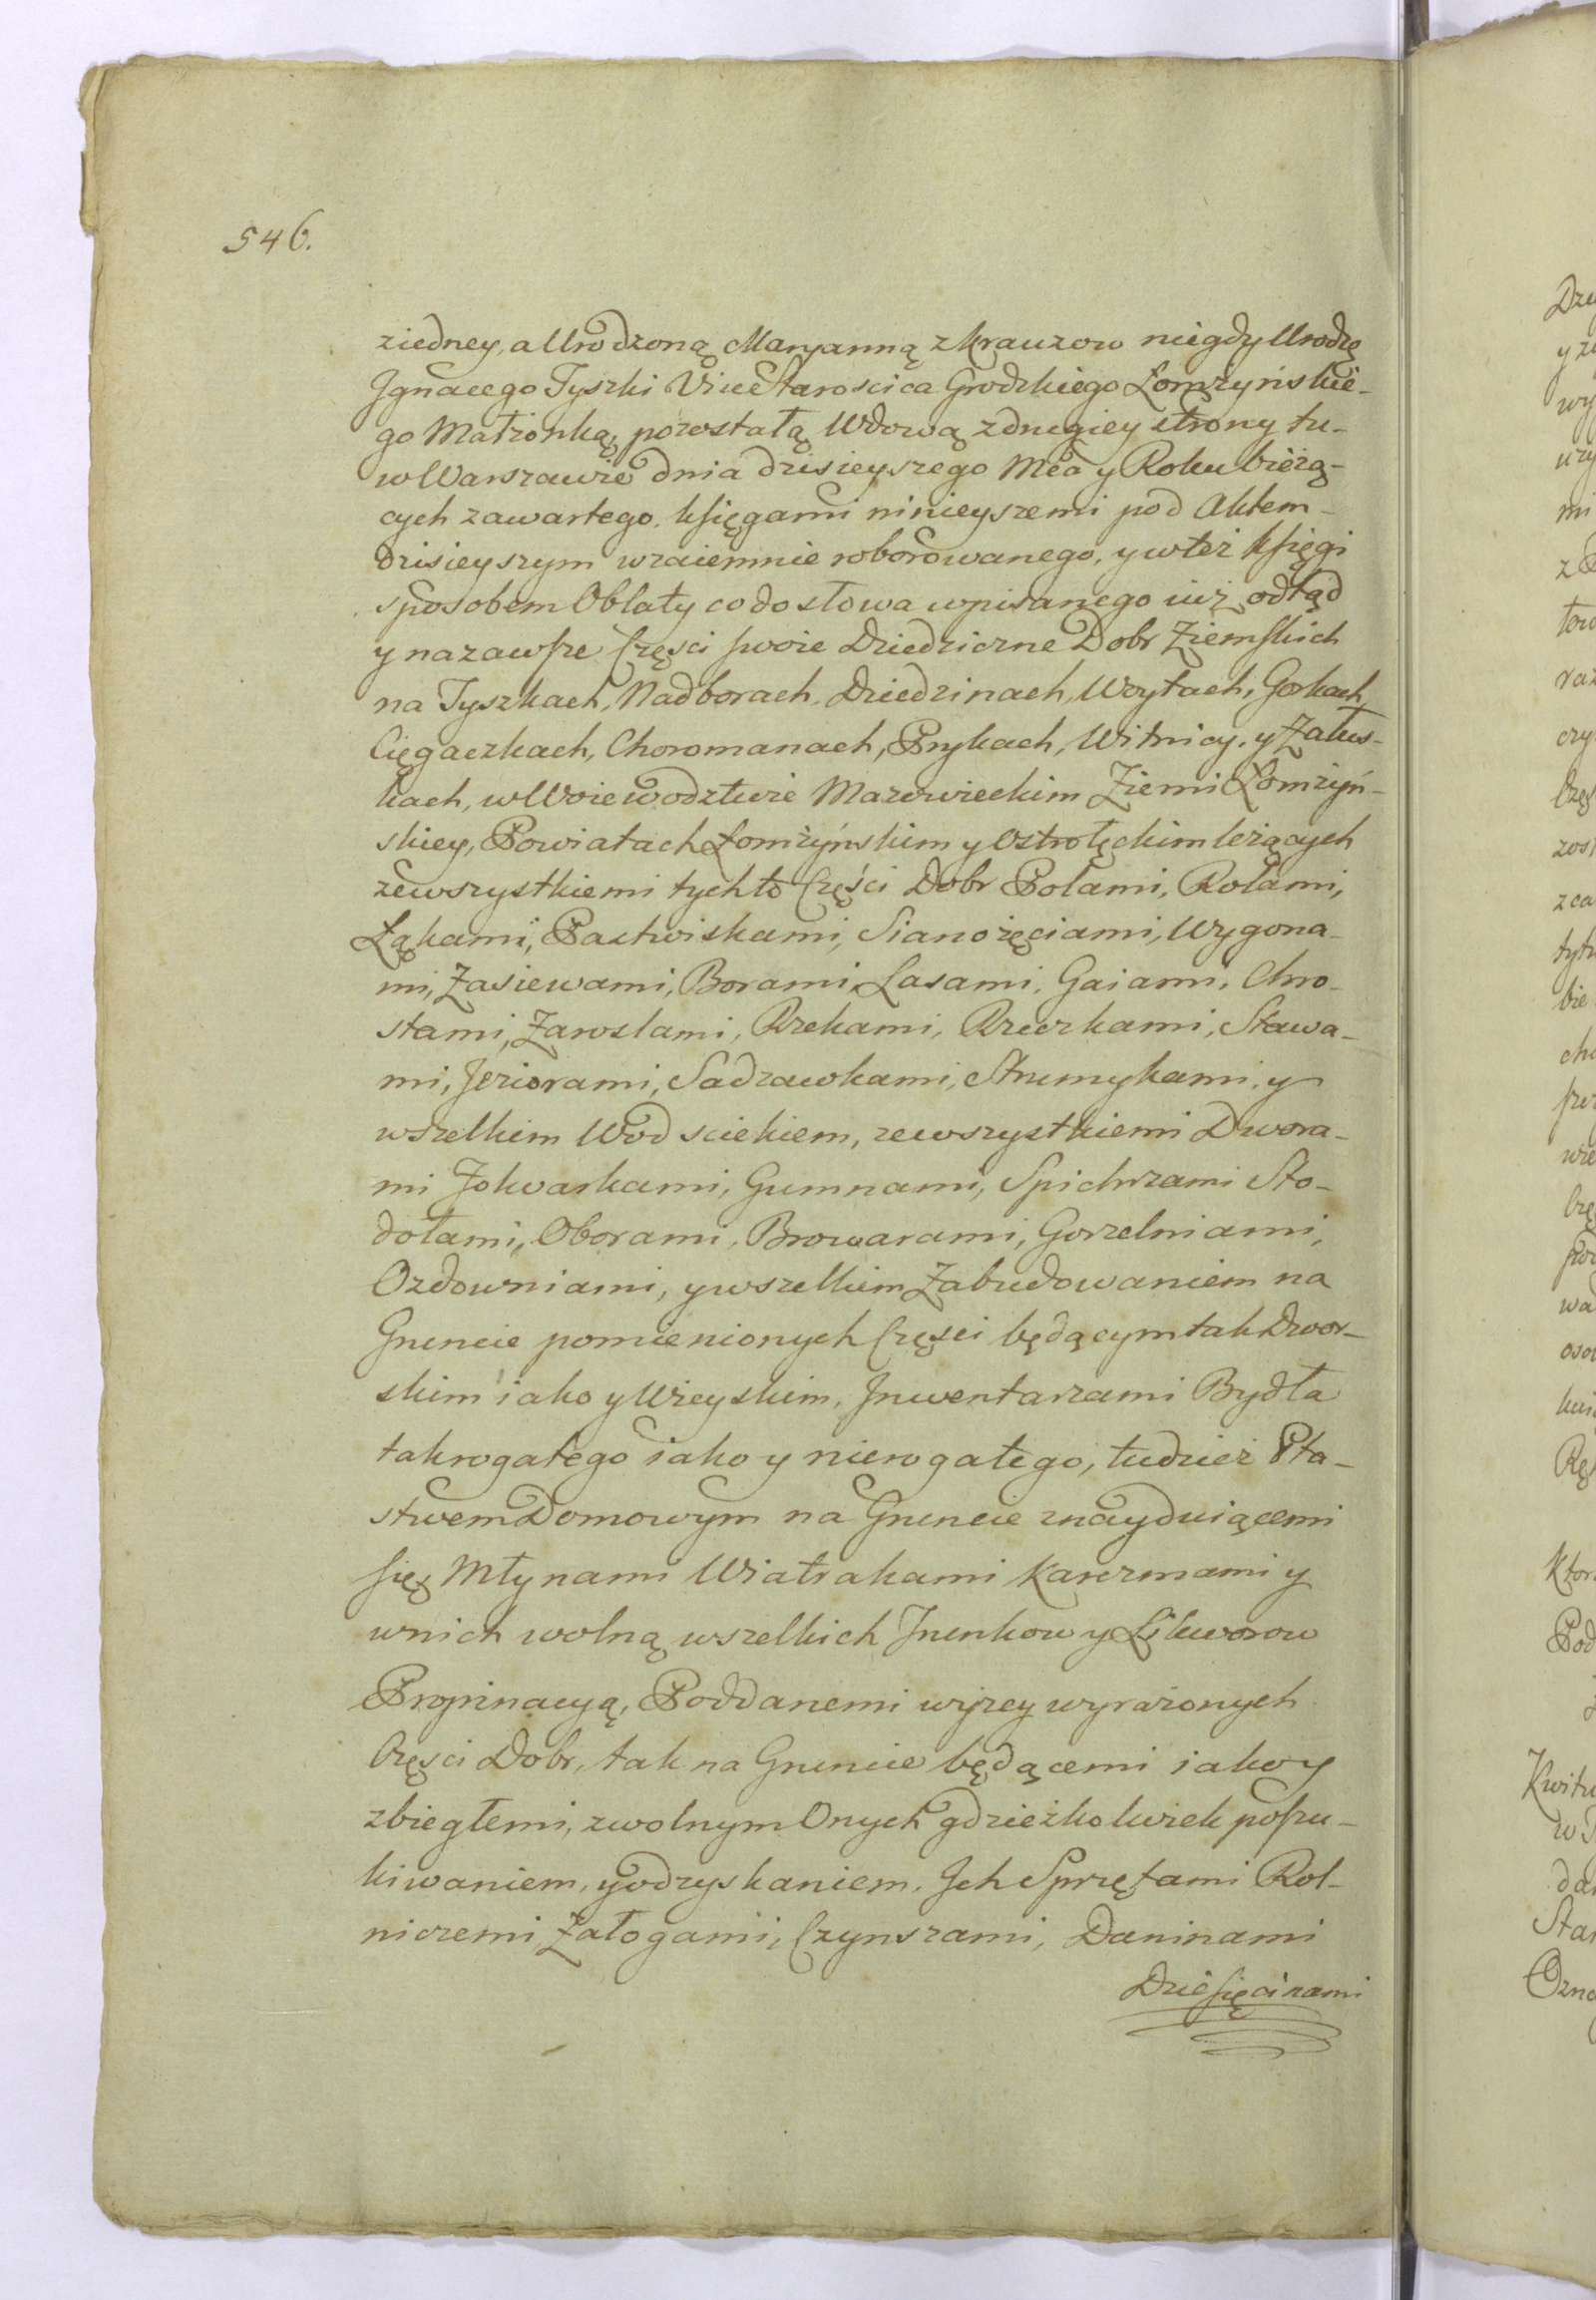 546.
ziedney, a Urodzoną Maryanną z Krauzow niegdy Urodzo
Jgnacego Tyszki ViceStaroscica Grodzkiego Łomzyńskie-
go Małżonką, pozostałą Wdową z drugiey strony tu-
w Warszawie dnia dzisieyszego Mca y Roku bieżą-
cych zawartego, księgami ninieyszemi pod Aktem-
dzisieyszym wzaiemnie roborowanego, y wteż księgi
sposobem Oblaty co do słowa wpisanego iuż odtąd
y nazawsze Części swoie Dziedziczne Dobr Ziemskich
na Tyszkach, Nadborach, Dziedzinach, Wrytach, Gorkach,
Cięgaczkach, Choromanach, Prykach, Witnicy, y Załus-
kach, w Woiewodztwie Mazowieckim Ziemi Łomżyń-
skiey, Powiatach Łomżyńskim y Ostrołęckim leżących
zewszystkiemi tychto Części Dobr Polami, Rolami,
Łąkami, Pastwiskami, Sianożęciami, Wygona-
mi, Zasiewami, Borami, Lasami, Gaiami, Chro-
stami, Zaroslami, Rzekami, Rzeczkami, Stawa-
mi, Jeziorami, Sadzawkami, Strumykami, y
wszelkim Wod sciekiem, zewszystkiemi Dwora-
mi Folwarkami, Gumnami, Spichrzami Sto-
dołami, Oborami, Browarami, Gorzelniami,
Ozdowniami, y wszelkim Zabudowaniem na
Gruncie pomienionych Części będącym tak Dwor-
skim iako y Wieyskim, Jnwentarzami Bydła
tak rogatego iako y nierogatego, tudzież Pta-
stwem Domowym na Gruncie znayduiącemi
się Młynami Wiatrakami Karczmami y
wnich wolną wszelkich Trunkow y Likworow
Propinacyą, Poddanemi wyżey wyrażonych
Części Dobr, tak na Gruncie będącemi iako y
zbiegłemi, zwolnym Onych gdzieżkolwiek poszu-
kiwaniem, y odzyskaniem, Jch Sprzętami Rol-
niczemi Załogami, Czynszami, Daninami
Dziesięcinami